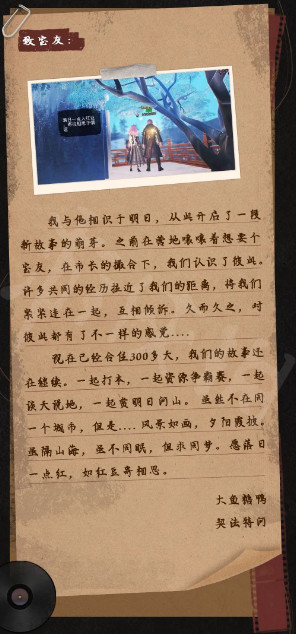 致宝友：
我与他相识于明日，从此开启了一段
新故事的萌芽。之前在营地嚷嚷着想要个
宝友，在市长的撮合下，我们认识了彼此。
许多共同的经历拉近了我们的距离，将我们
紧紧连在一起，互相倾诉。久而久之，对
彼此都有了不一样的感觉....
现在已经合住300多天，我们的故事还
在继续。一起打本，一起资源争霸赛，一起
谈天说地，一起赏明日河山。虽然不在同
一个城市，但是....风景如画，夕阳霞披。
虽隔山海，虽不同眠，但求同梦。愿落日
一点红，如红豆寄相思。
大鱼鹅鸭
契法特问